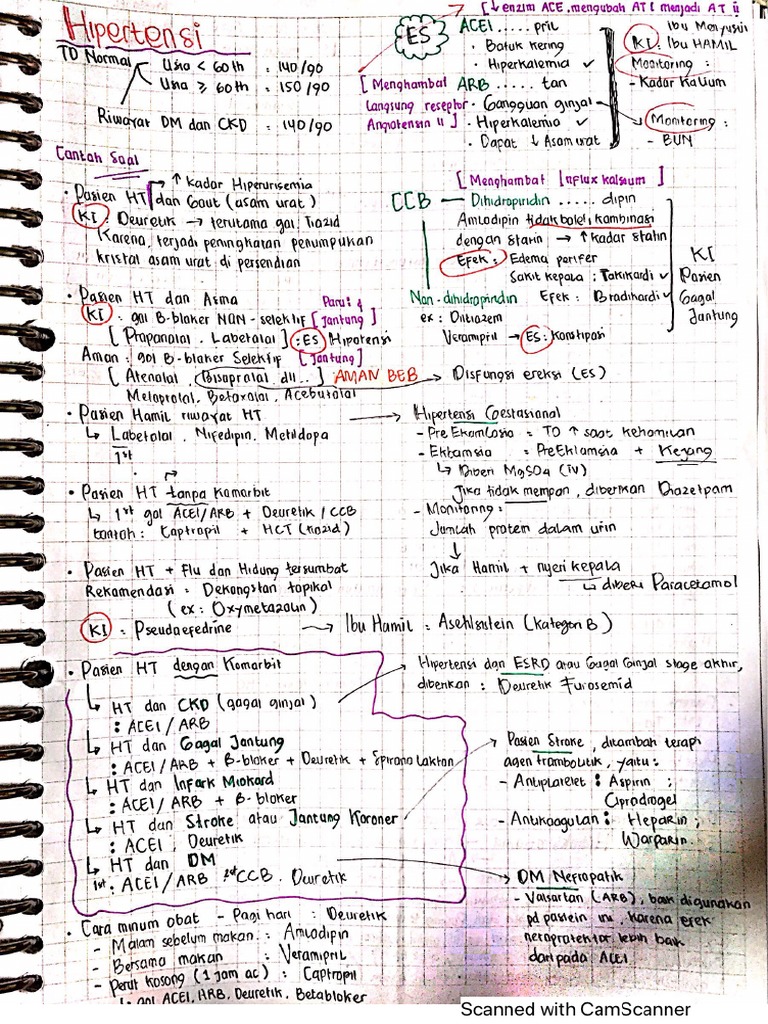 Hipertensi
TD Normal
Usia < 60 th : 140/90
Usia ≥ 60 th : 150/90
Riwayat DM dan CKD : 140/90
[↓ enzim ACE, mengubah AT I menjadi AT II
ES
ACEI ..... pril
· Batuk kering
· Hiperkalemia ✓
[Menghambat Langsung reseptor Angiotensin II]
ARB ..... tan
· Gangguan ginjal
· Hiperkalemia ✓
· Dapat ↓ Asam urat
Ibu Menyusui
KI : Ibu HAMIL
Monitoring :
- Kadar Kalium
Monitoring :
- BUN
Contoh Soal
→ ↑ Kadar Hiperurisemia
· Pasien HT dan Gout (asam urat)
KI : Deuretik → terutama gol. Tiazid
Karena, terjadi peningkatan penumpukan
kristal asam urat di persendian
[Menghambat Influx kalsium]
CCB
Dihidropiridin ..... dipin
Amlodipin tidak boleh kombinasi
dengan statin → ↑ kadar statin
Efek : Edema perifer
Sakit kepala ; Takikardi ✓
Non-dihidropiridin Efek : Bradikardi ✓
ex : Diltiazem
Verampril → ES : Konstipasi
KI
Pasien
Gagal
Jantung
· Pasien HT dan Asma
KI : gol B-bloker NON-selektif [Paru & Jantung]
[Propanolol . Labetalol] : ES Hipotensi
Aman : gol B-bloker Selektif [Jantung]
[Atenolol , Bisoprolol dll...] AMAN BEB
Metoprolol, Betaxolol, Acebutolol
→ Disfungsi ereksi (ES)
· Pasien Hamil riwayat HT
↳ Labetalol , Nifedipin, Metildopa
1st
→ Hipertensi Gestasional
- Pre Eklamsia = TD ↑ saat kehamilan
- Eklamsia = PreEklamsia + Kejang
↳ Diberi MgSO4 (iv)
Jika tidak mempan, diberikan Diazelpam
- Monitoring :
Jumlah protein dalam urin
↓
Jika Hamil + nyeri kepala
↳ diberi Paracetamol
· Pasien HT tanpa Komorbit
↳ 1st gol ACEI/ARB + Deuretik / CCB
contoh : Captropil + HCT (tiazid)
· Pasien HT + Flu dan Hidung tersumbat
Rekomendasi : Dekongstan topikal
(ex : Oxymetazolin)
KI : Pseudoefedrine → Ibu Hamil : Asetilsistein (Kategori B)
· Pasien HT dengan Komorbit
↳ HT dan CKD (gagal ginjal)
: ACEI / ARB
↳ HT dan Gagal Jantung
: ACEI/ARB + B-bloker + Deuretik + Spironolakton
↳ HT dan Infark Miokard
: ACEI / ARB + B-bloker
↳ HT dan Stroke atau Jantung Koroner
: ACEI , Deuretik
↳ HT dan DM
1st : ACEI / ARB CCB . Deuretik
Hipertensi dan ESRD atau Gagal Ginjal stage akhir,
diberikan : Deuretik Furosemid
Pasien Stroke , ditambah terapi
agen trombolitik , yaitu :
- Antiplatelet : Aspirin ;
Clprodrogel
- Antikoagulan : Heparin ;
Warparin.
→ DM Nefropatik
- Valsartan (ARB), baik digunakan
pd pasien ini karena efek
lebih baik
daripada ACEI
· Cara minum obat - Pagi hari : Deuretik
- Malam sebelum makan : Amlodipin
- Bersama makan : Veramipril
- Perut kosong (1 jam ac) : Captropil
↳ gol ACEI, ARB, Deuretik, Betabloker
Scanned with CamScanner